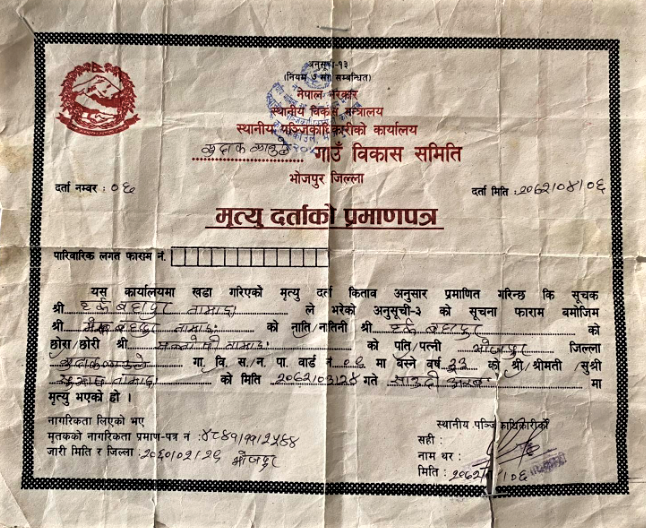 अनुसूची-१३
(नियम ७ सँग सम्बन्धित)
नेपाल सरकार
स्थानीय विकास मन्त्रालय
स्थानीय पञ्जिकाधिकारीको कार्यालय
गाउँ विकास समिति
भोजपुर जिल्ला
दर्ता नम्बर : ०६
दर्ता मिति : २०६२।०४।०६
मृत्यु दर्ताको प्रमाणपत्र
पारिवारिक लगत फाराम नं.
यस कार्यालयमा खडा गरिएको मृत्यु दर्ता किताव अनुसार प्रमाणित गरिन्छ कि सूचक
श्री हर्क बहादुर तामाङ ले भरेको अनुसूची-३ को सूचना फाराम बमोजिम
श्री बहादुर तामाङ को नाति/नातिनी श्री हर्क बहादुर को
छोरा/छोरी श्री तामाङ को पति/पत्नी भोजपुर जिल्ला
गा. वि. स./न. पा. वार्ड नं ०६ मा बस्ने वर्ष २३ को श्री/श्रीमती/सुश्री
तामाङ को मिति २०६२।०३।२४ गते साउदी अरब मा
मृत्यु भएको हो ।
नागरिकता लिएको भए
मृतकको नागरिकता प्रमाण-पत्र नं :
जारी मिति र जिल्ला : २०६०।०२।२६ भोजपुर
स्थानीय पञ्जिकाधिकारीको
सही :
नाम थर :
मिति : २०६२ ०६